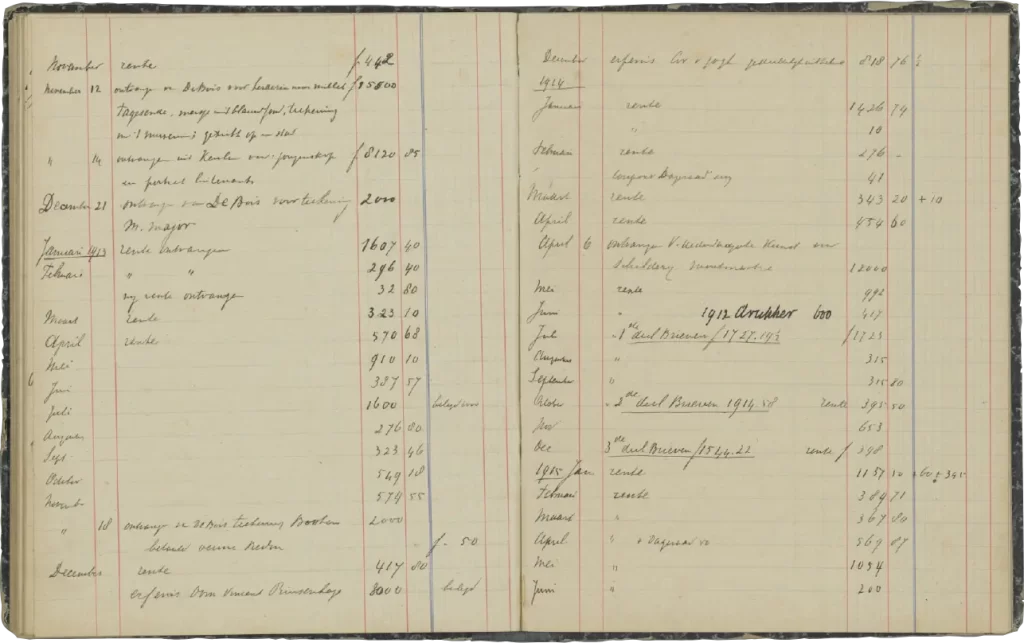 November rente f 442
November 12 ontvangen van De Bois voor herderin naar millet f 35500
en 1 museum; gezicht op een stad
" 14 ontvangen uit Keulen voor: jongenskop f 8120 85
en portret luitenant
December 21 ontvangen van De Bois voor teekening 2000
M. Major
Januari 1913 rente ontvangen 1607 40
Februari " " 296 40
rente ontvangen 32 80
Maart rente 323 10
April rente 570 68
Mei 910 10
Juni 387 57
Juli 1600 belegd
Augustus 276 80
Sept. 323 46
October 549 18
November 574 55
" 18 ontvangen van De Bois teekening Booten 2000
f - 50
December rente 417 80
erfenis Oom Vincent Prinsenhage 8000 belegd
December erfenis Cor v Gogh 818 76
1914
Januari rente 1426 74
" 10
Februari rente 276 -
coupons Dageraad 41
Maart rente 343 20 + 10
April rente 454 60
April 6 ontvangen v. Nederlandsche Kunst voor
schilderij Montmartre 12000
Mei rente 992
Juni " 1912 drukker 600 417
Juli - 1ste deel Brieven f 1727.19½ f 1723
Augustus " 315
September " 315 80
October - 2de deel Brieven 1914.58 rente 395 50
Nov 653
Dec 3de deel Brieven f 1544.22 rente f 398
1915 Jan rente 1157 10 + 60 + 395
Februari rente 389 71
Maart " 367 80
April " + Dageraad 569 87
Mei " 1054
Juni " 200